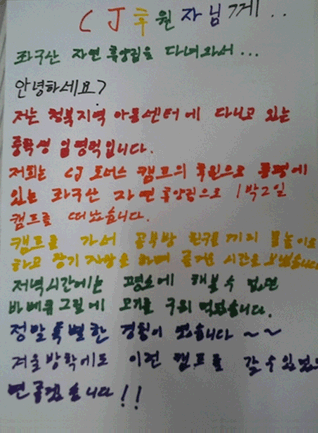 CJ후원자님께..
좌구산 자연 휴양림을 다녀와서...
안녕하세요?
저는 청북지역 아동센터에 다니고 있는
중학생 입니다.
저희는 CJ 도너스 캠프의 후원으로 증평에
있는 좌구산 자연 휴양림으로 1박2일
캠프를 떠났습니다.
캠프를 가서 공부방 친구들끼리 물놀이도
하고 장기자랑을 하며 즐거운 시간을 보냈습니다.
저녁시간에는 평소에 해볼 수 없던
바베큐그릴에 고기를 구워 먹었습니다.
정말 특별한 경험이 였습니다 ~~
겨울방학에도 이런 캠프를 갈수있었으
면 좋겠습니다!!